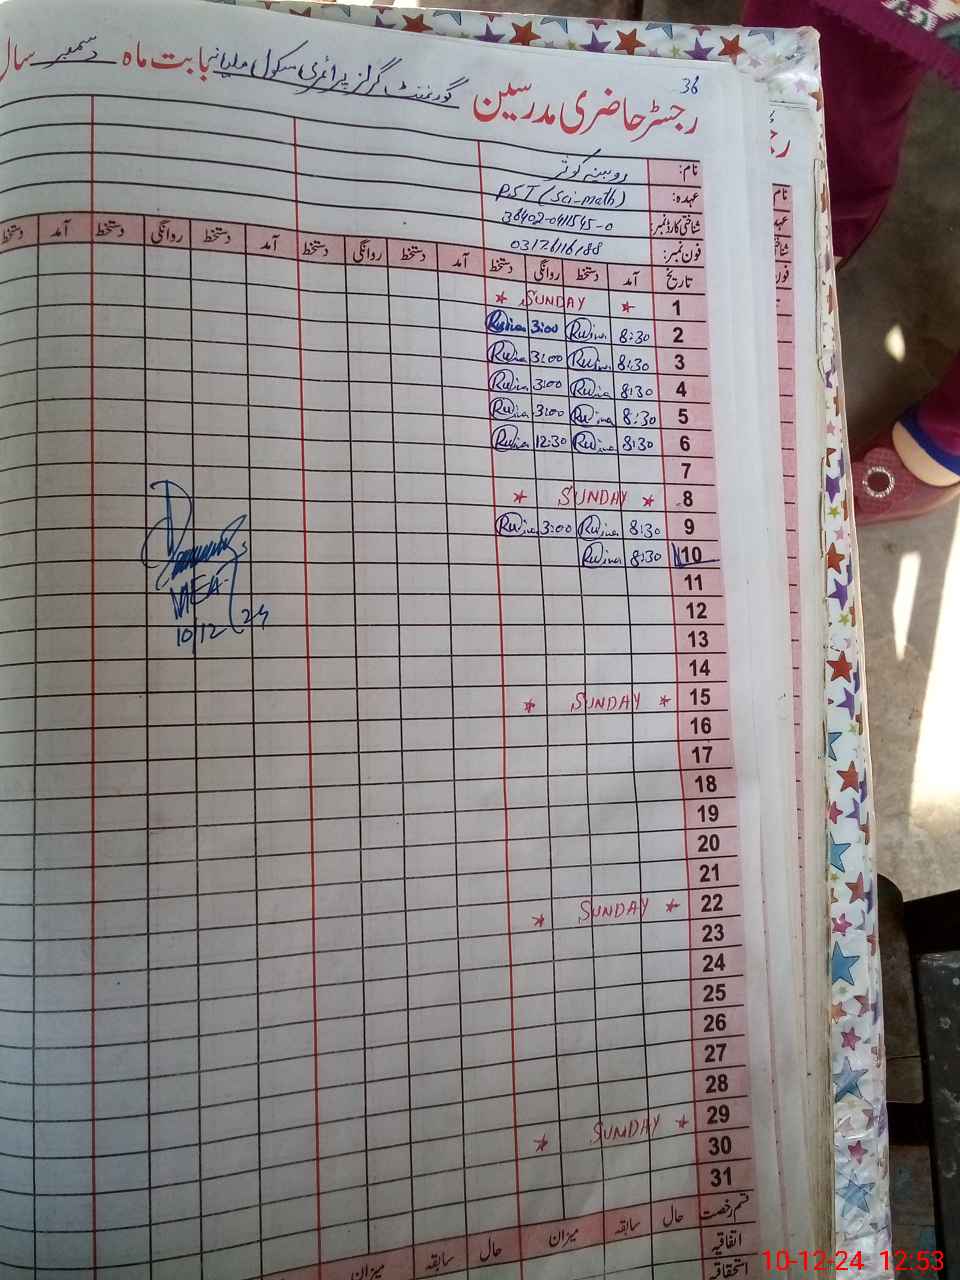 36
رجسٹر حاضری مدرسین گورنمنٹ گرلز پرائمری سکول ملیانہ بابت ماہ دسمبر سال
نام: روبینہ کوثر
عہدہ: PST (Sci-math)
شناختی کارڈ نمبر: 36402-0411545-0
فون نمبر: 03126116188
تاریخ آمد دستخط روانگی دستخط آمد دستخط روانگی دستخط آمد دستخط روانگی دستخط آمد دستخط
1 * SUNDAY *
2 8:30 Rubina 3:00 Rubina
3 8:30 Rubina 3:00 Rubina
4 8:30 Rubina 3:00 Rubina
5 8:30 Rubina 3:00 Rubina
6 8:30 Rubina 12:30 Rubina
7
8 * SUNDAY *
9 8:30 Rubina 3:00 Rubina
10 8:30 Rubina
11
12
13
14
15 * SUNDAY *
16
17
18
19
20
21
22 * SUNDAY *
23
24
25
26
27
28
29 * SUNDAY *
30
31
MEA
10/12/24
قسم رخصت حال سابقہ میزان حال سابقہ میزان
اتفاقیہ
استحقاقیہ
نام
10-12-24 12:53